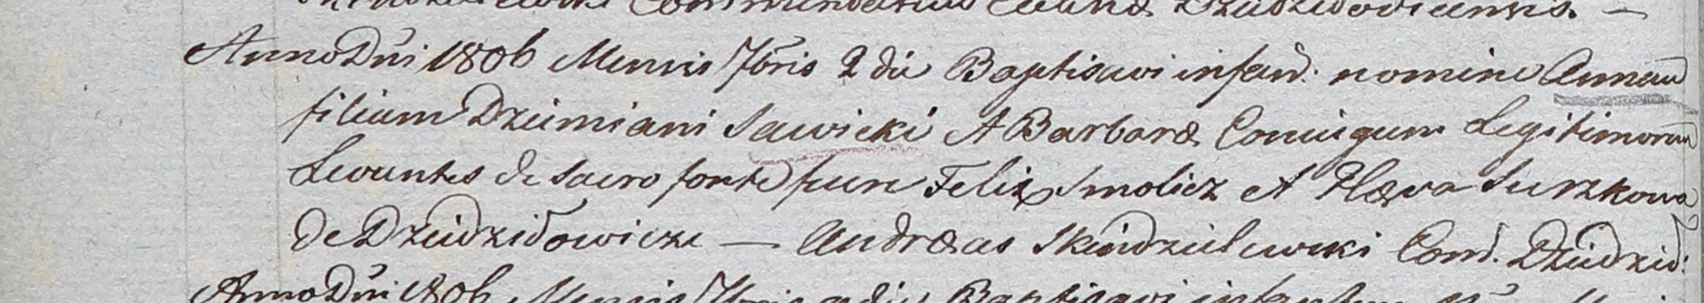 Commendarius Ecclæ Dziedziłoviensis. —
Anno Dni 1806 Mensis 7bris 2 die Baptisavi infan. nomine Annam
filiam Dziemiani Sawicki et Barbaræ Coniugum Legitimorum
Levantes de Sacro fonte fuere Felix Smolicz et Hłæra Suszkowa
de Dziedziłowicze — Andræas Skindzielewski Com. Dziedził:
Anno Dni 1806 Mensis 7bris die Baptisavi infantem